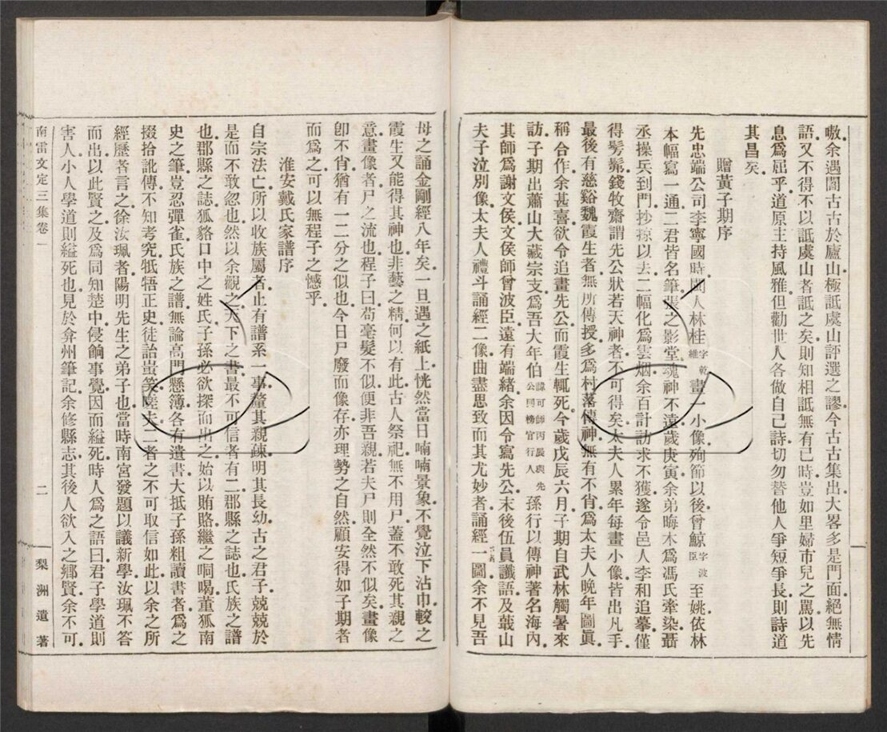 嗷余遇閻古古於廬山極詆虞山評選之謬今古古集出大畧多是門面絕無情
語又不得不以詆虞山者詆之矣則知相詆無有已時豈如里婦市兒之罵以先
息爲屈乎道原主持風雅但勸世人各做自己詩切勿替他人爭短爭長則詩道
其昌矣
贈黃子期序
先忠端公司李寧國時 人林桂字乾維畫一小像殉節以後曾鯨字波臣至姚依林
本幅寫一通二君皆名筆 之影堂魂神不遠歲庚寅余弟晦木爲馮氏牽染聶
丞操兵到門抄掠以去二幅化爲雲烟余百計訪求不獲遂令邑人李和追摹僅
得髣髴錢牧齋謂先公狀若天神者不可得矣太夫人累年每畫小像皆出凡手
最後有慈谿魏霞生者無所傳授多爲村落傳神無有不肖爲太夫人晚年圖眞
稱合作余甚喜欲令追畫先公而霞生輒死今歲戊辰六月子期自武林觸暑來
訪子期出蕭山大藏宗支爲吾大年伯 孫行以傳神著名海內
其師爲謝文侯文侯師曾波臣遠有端緒余因令寫先公末後伍員讖語及蕺山
夫子泣別像太夫人禮斗誦經二像曲盡思致而其尤妙者誦經一圖余不見吾
母之誦金剛經八年矣一旦遇之紙上恍然當日喃喃景象不覺泣下沾巾較之
霞生又能得其神也非藝之精何以有此古人祭祀無不用尸蓋不敢死其親之
意畫像者尸之流也程子曰苟毫髮不似便非吾親若夫尸則全然不似矣畫像
卽不肖猶有一二分之似也今日尸廢而像存亦理勢之自然顧安得如子期者
而爲之可以無程子之憾乎
淮安戴氏家譜序
自宗法亡所以收族屬者止有譜系一事釐其親疎明其長幼古之君子兢兢於
是而不敢忽也然以余觀之天下之書最不可信者有二郡縣之誌也氏族之譜
也郡縣之誌狐貉口中之姓氏子孫必欲探而出之始以賄賂繼之哃喝董狐南
史之筆豈忍彈雀氏族之譜無論高門懸簿各有遺書大抵子孫粗讀書者爲之
掇拾訛傳不知考究牴牾正史徒詒嗤笑嗟夫二者之不可取信如此以余之所
經歷者言之徐汝珮者陽明先生之弟子也當時南宮發題以議新學汝珮不答
而出以此賢之及爲同知楚中侵餉事覺因而縊死時人爲之語曰君子學道則
害人小人學道則縊死也見於弇州筆記余修縣志其後人欲入之鄉賢余不可
南雷文定三集卷一
二
梨洲遺著